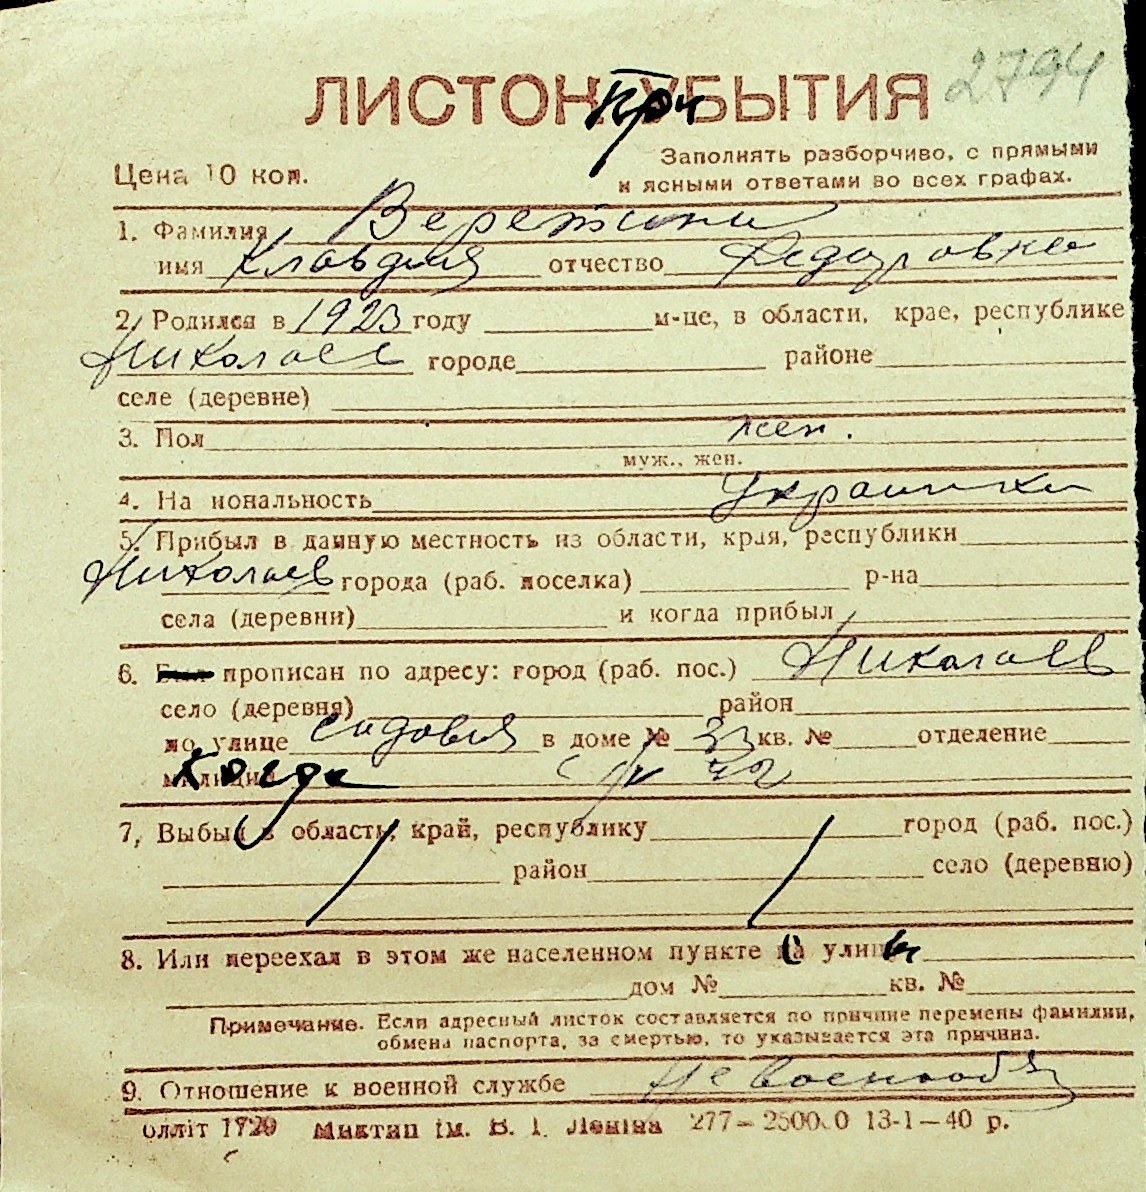 2794
ЛИСТОК при УБЫТИЯ
Цена 10 коп.
Заполнять разборчиво, с прямыми
и ясными ответами во всех графах.
1. Фамилия
имя Клавдия отчество Федоровна
2. Родился в 1923 году м-це, в области, крае, республике
Николаев городе районе
селе (деревне)
3. Пол жен.
муж., жен.
4. На иональность Украинка
5. Прибыл в данную местность из области, края, республики
Николаев города (раб. поселка) р-на
села (деревни) и когда прибыл
6. прописан по адресу: город (раб. пос.) Николаев
село (деревня) район
по улице садовая в доме № 33 кв. № отделение
милиции когда
7. Выбыл в область, край, республику город (раб. пос.)
район село (деревню)
8. Или переехал в этом же населенном пункте с улицы
дом № кв. №
Примечание. Если адресный листок составляется по причине перемены фамилии,
обмена паспорта, за смертью, то указывается эта причина.
9. Отношение к военной службе Не военнооб
олліт 1720 Миктип ім. В. І. Леніна 277—2500.0 13-1—40 р.